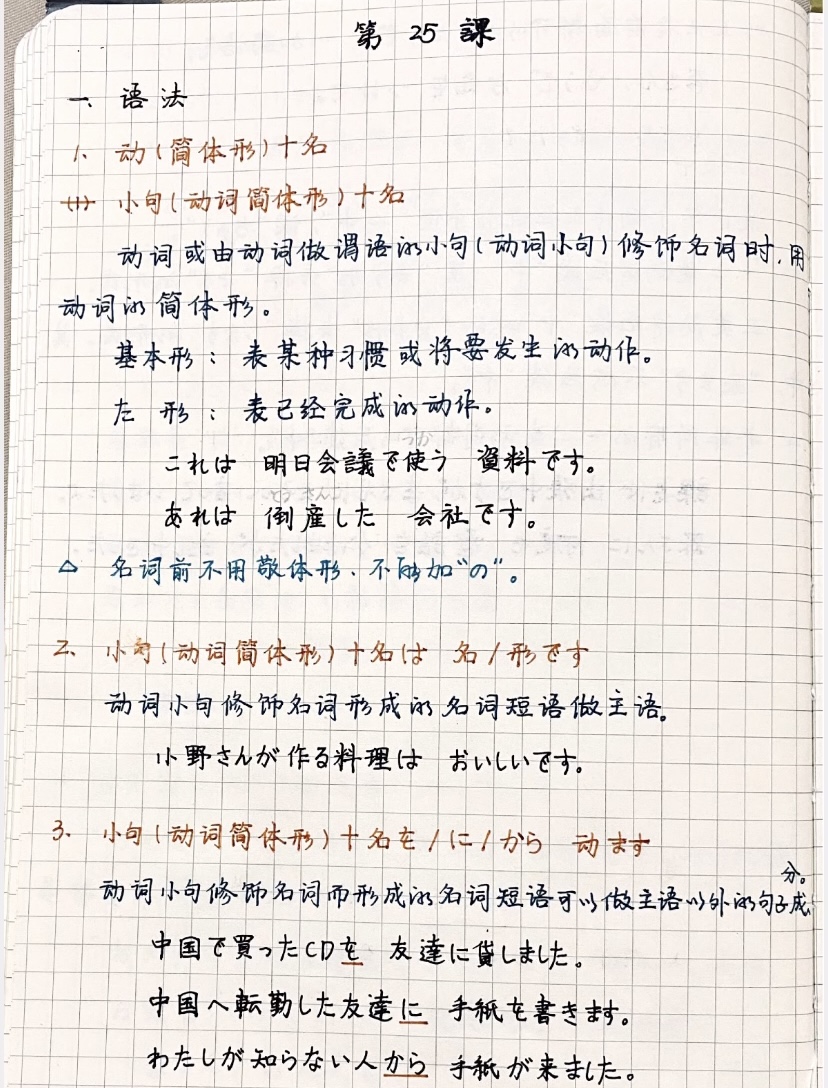 第 25 課
一、语法
1、动(简体形)+名
小句(动词简体形)+名
动词或由动词做谓语的小句(动词小句)修饰名词时,用
动词的简体形。
基本形：表某种习惯或将要发生的动作。
た 形：表已经完成的动作。
つか
これは 明日会議で使う 資料です。
とうさん
あれは 倒産した 会社です。
△ 名词前不用敬体形、不能加"の"。
2、小句(动词简体形)+名は 名/形です
动词小句修饰名词形成的名词短语做主语。
小野さんが作る料理は おいしいです。
3、小句(动词简体形)+名を/に/から 动ます
动词小句修饰名词而形成的名词短语可以做主语以外的句子成
分。
中国で買ったCDを 友達に貸しました。
中国へ転勤した友達に 手紙を書きます。
わたしが知らない人から 手紙が来ました。